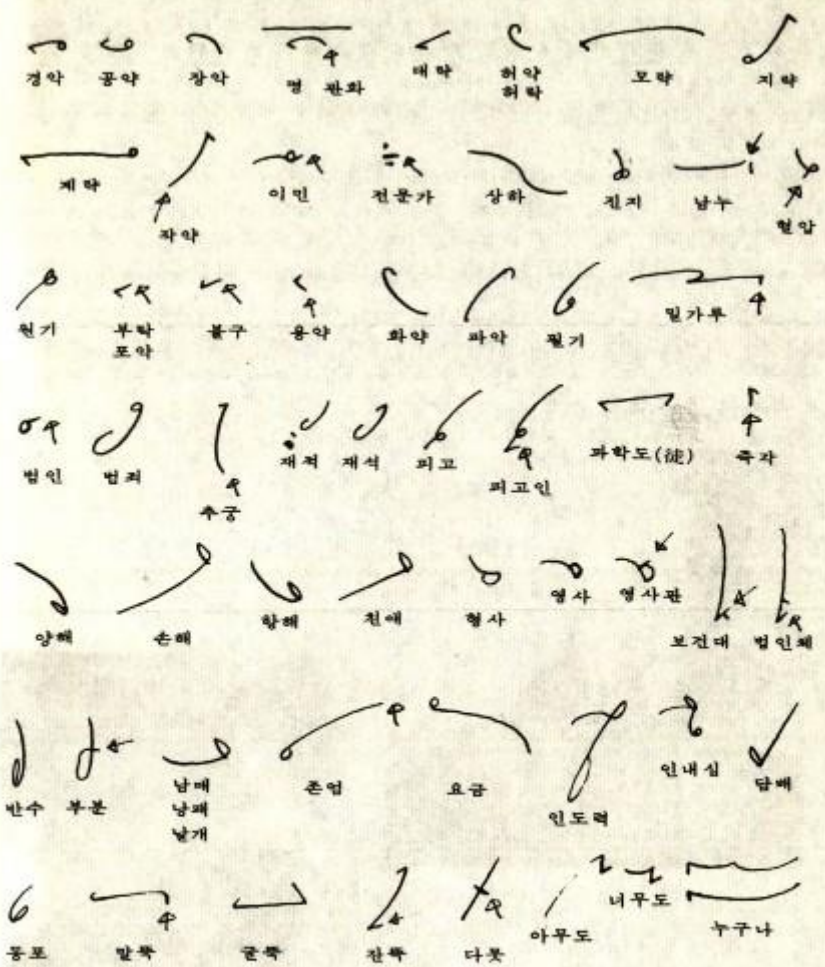 경악 공약 장악 명 판화 대략 허약 모략 지략
허락
계략 작약 이민 전문가 상하 진지 남누 혈압
원기 부탁 불구 용약 화약 파악 필기 밀가루
포악
범인 범죄 추궁 재적 재석 피고 피고인 과학도(徒) 즉각
양해 손해 항해 천애 형사 영사 영사관 보건대 범인체
반수 부분 남매 존엄 요금 인도력 인내심 담배
낭패
날개
동포 말뚝 굴뚝 잔뜩 다못 아무도 너무도 누구나